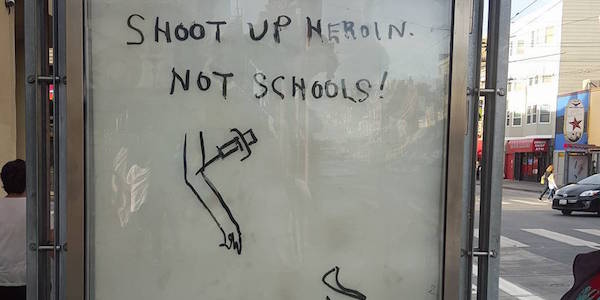 SHOOT UP HEROIN.
NOT SCHOOLS!